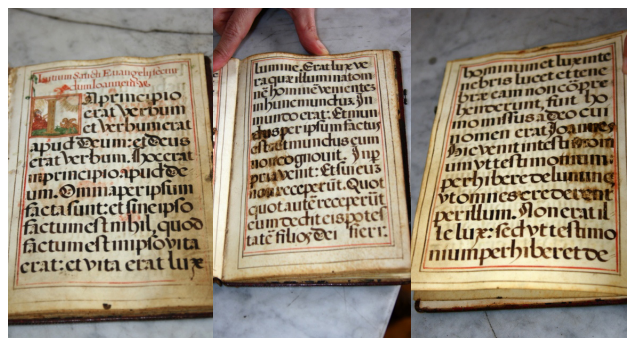 Initium Sancti Euangelij secun
dum Ioannem.
In principio
erat verbum
et verbum erat
apud Deum: et Deus
erat verbum. Hoc erat
in principio apud de
um. Omnia per ipsum
facta sunt: et sine ipso
factum est nihil, quod
factum est in ipso vita
erat: et vita erat lux
lumine. Erat lux ve
ra quæ illuminat om
nē hominē venientes
in hunc mundus. In
mundo erat: Et mun
dus per ipsum factus
est: et mundus eum
non cognouit. In p
pria venit: Et sui eum
non receperūt. Quot
quot autē receperūt
eum dedit eis potes
tatē filios Dei fieri:
hominum et lux in te
nebris lucet et tene
bræ eam non cōpre
henderunt, fuit ho
mo missus a deo cui
nomen erat Joannes
hic venit in testimoni
um vt testimonium:
perhiberet de lumine
vt omnes crederent
per illum. Non erat il
le lux: sed vt testimo
nium perhiberet de